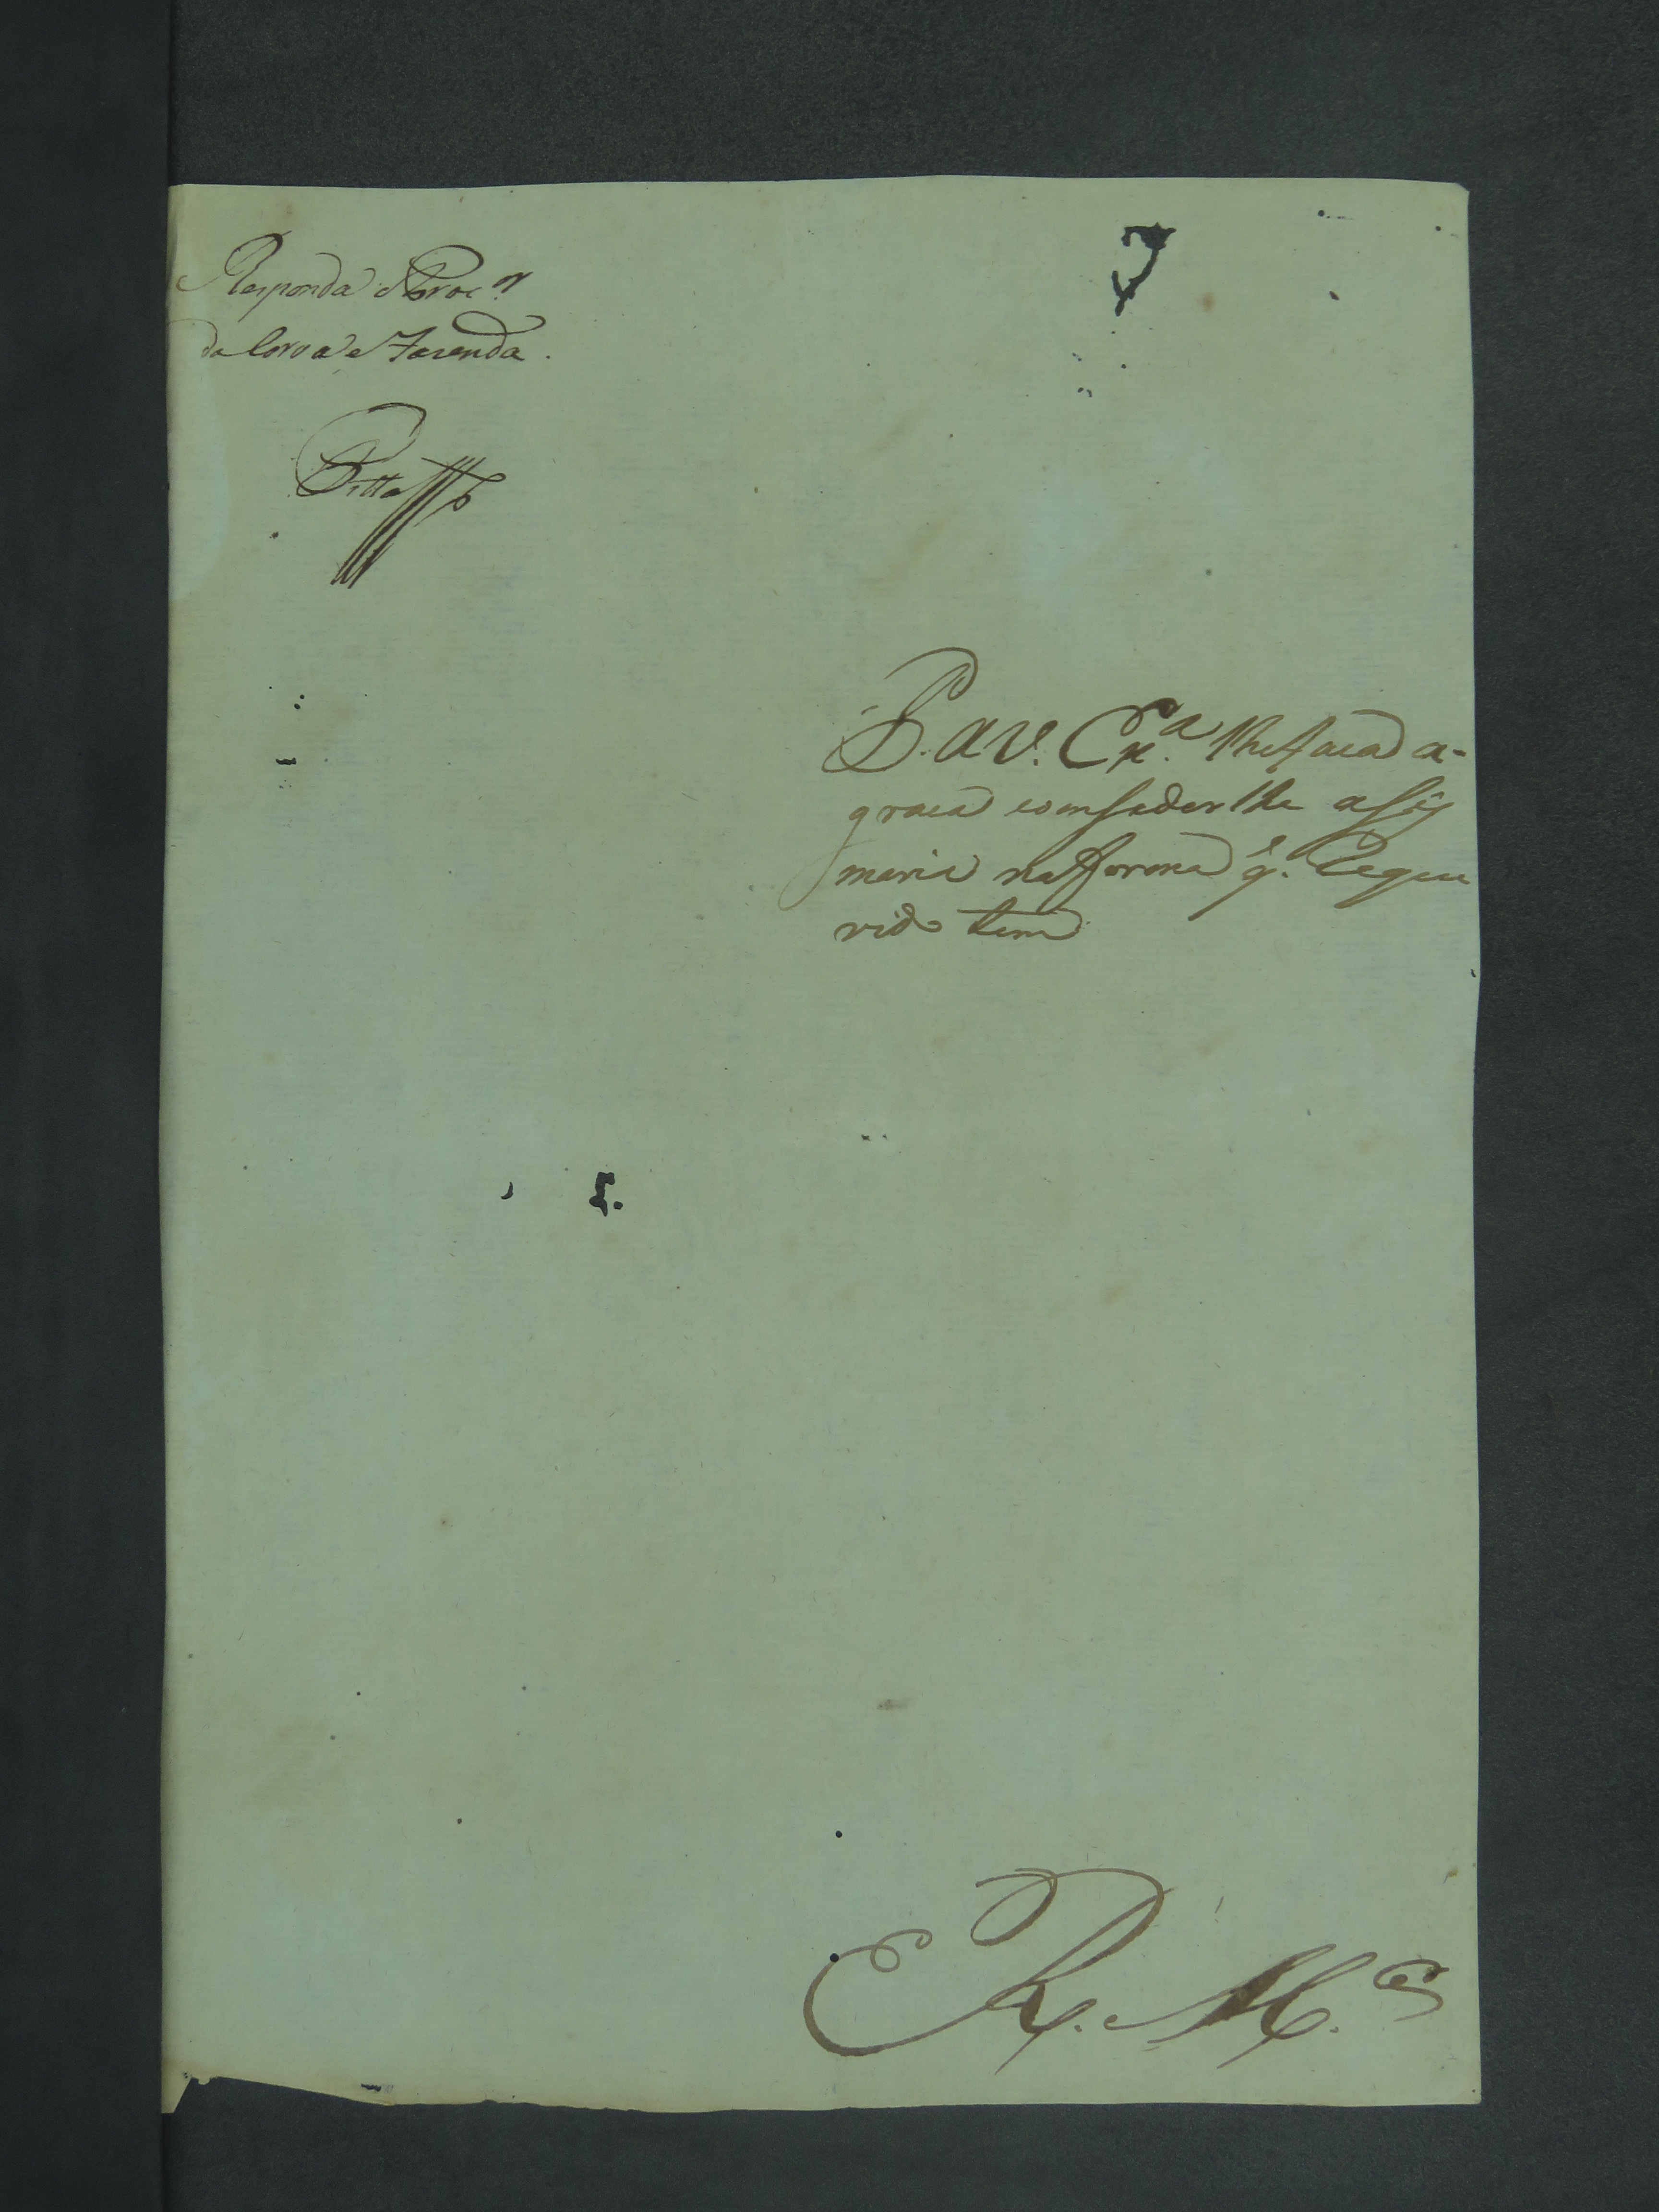 Responda o Proc.or
da Coroa e Fazenda.
Pitta
P. a V. Ex.a lhe faca a-
graca comsederlhe a Siz
maria na fforma q.e Reque
rido tem
E R. M.ce